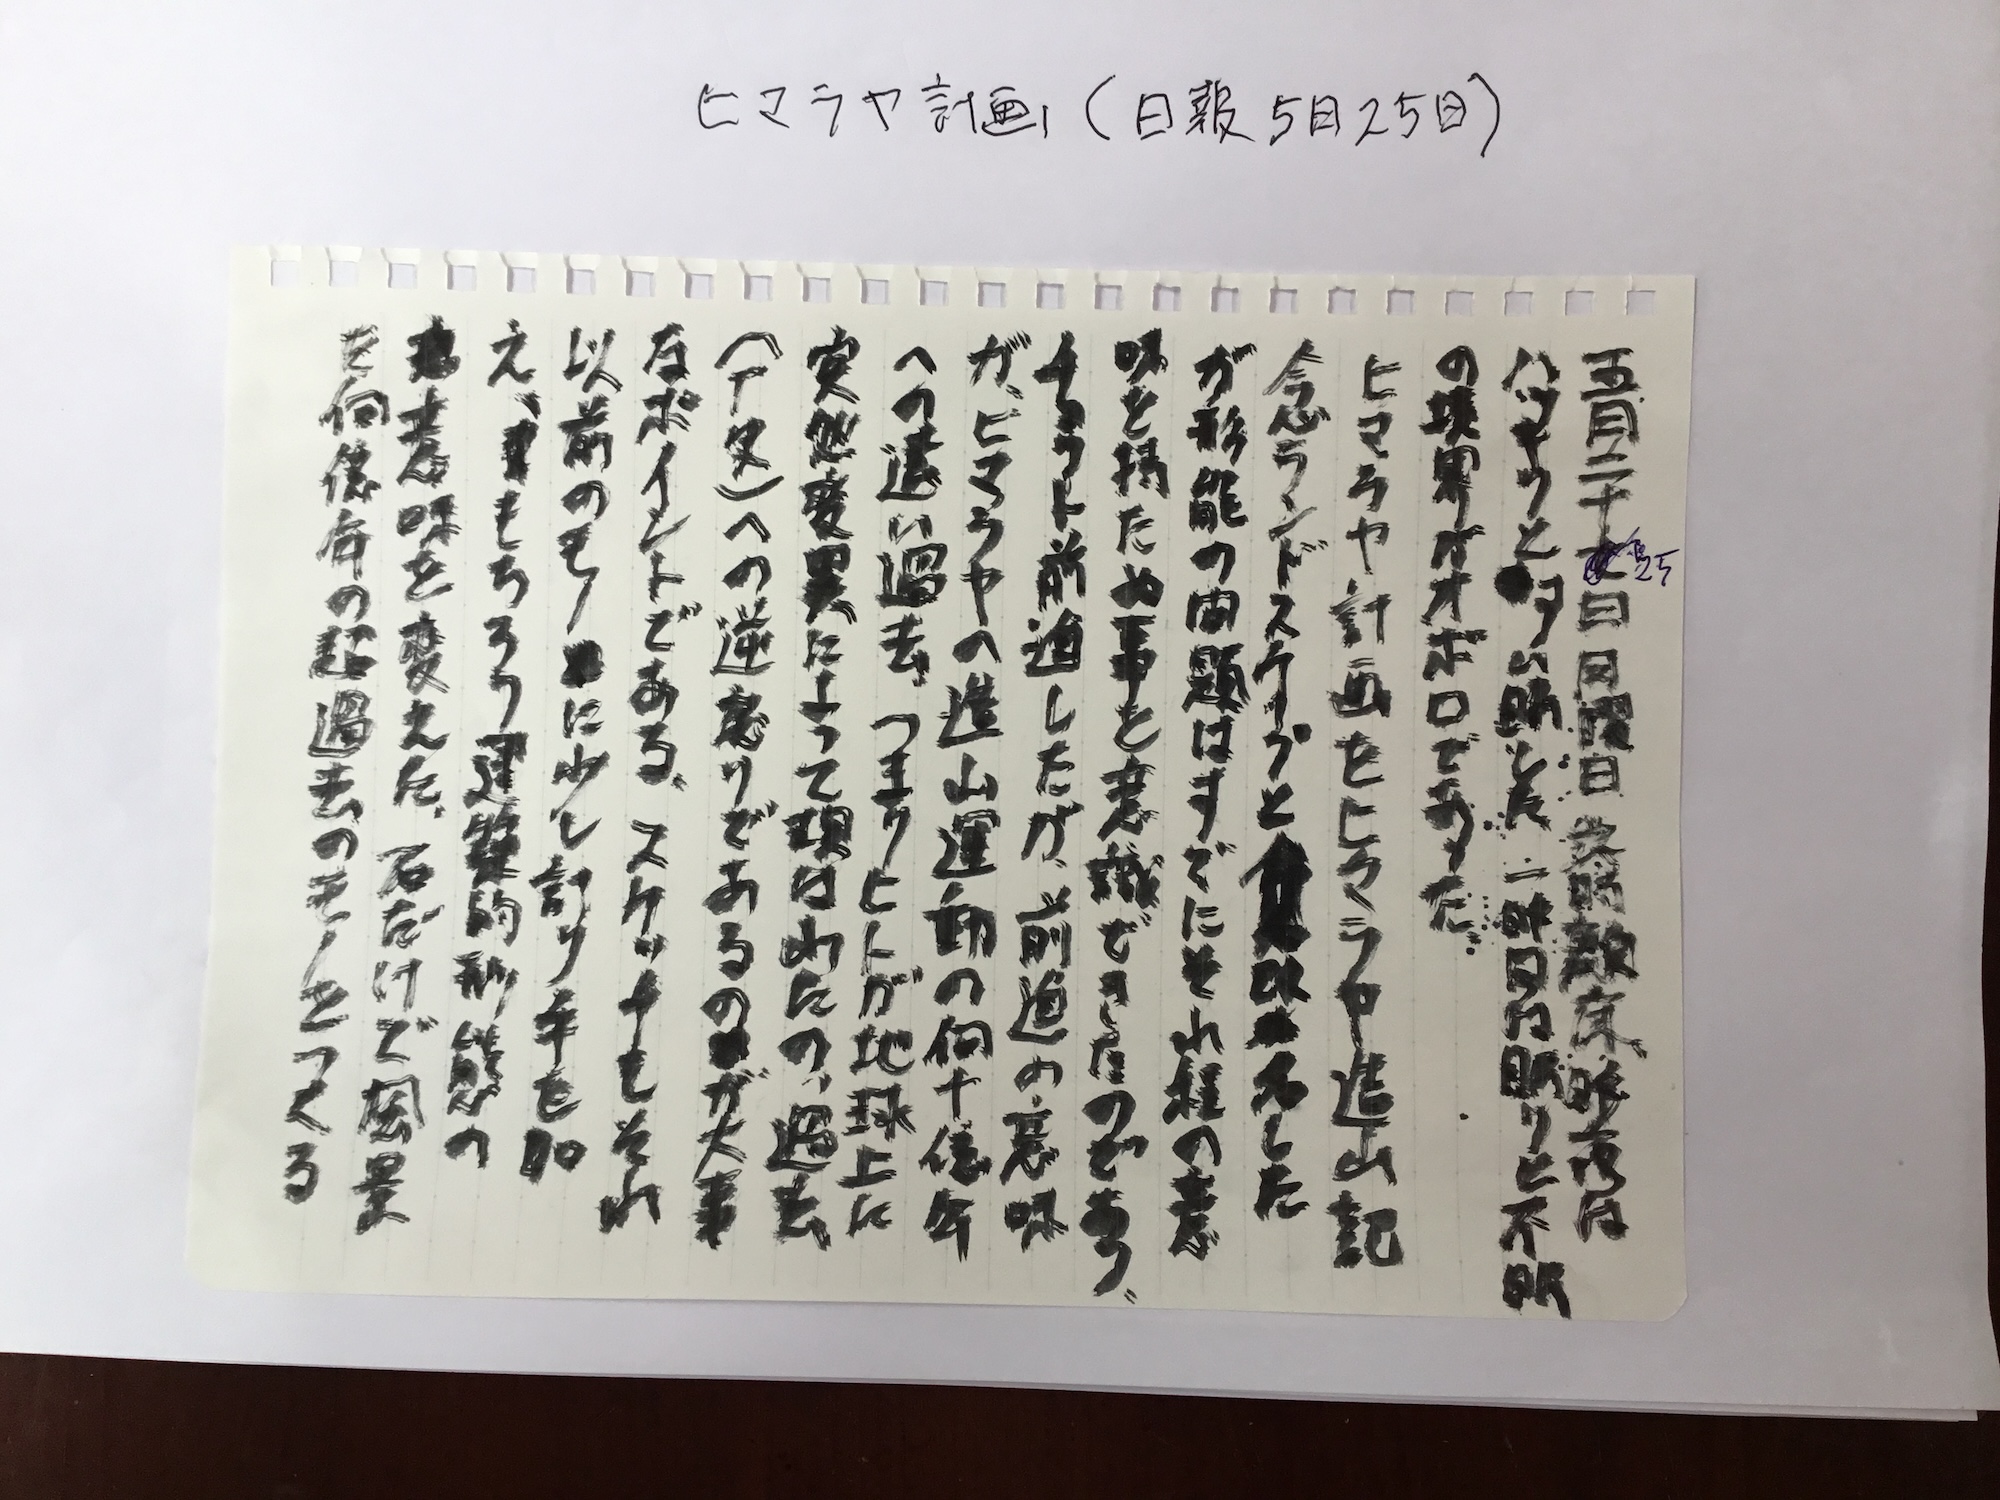 ヒマラヤ計画（日報5月25日）
五月二十 25 日 日曜日 六時 床、昨夜は
ハッキリと 眠した 二昨日は眠りと不眠
の境界がオボロであった。
ヒマラヤ計画をヒマラヤ造山記
念ランドスケープと 改名した
が形態の問題はすでにそれ程の意
味を持たぬ事を意識できたのであろう、
チョット前進したが、前進の意味
が、ヒマラヤの造山運動の何十億年
への遠い過去、つまりヒトが地球上に
突然変異によって現はれたの、過去
への逆登りであるのが大事
なポイントである。スケッチもそれ
以前のモノに少し計り手を加
え、もちろん建築的形態の
意味を変えた。石だけで風景
を何億年の超過去のモノとつくる